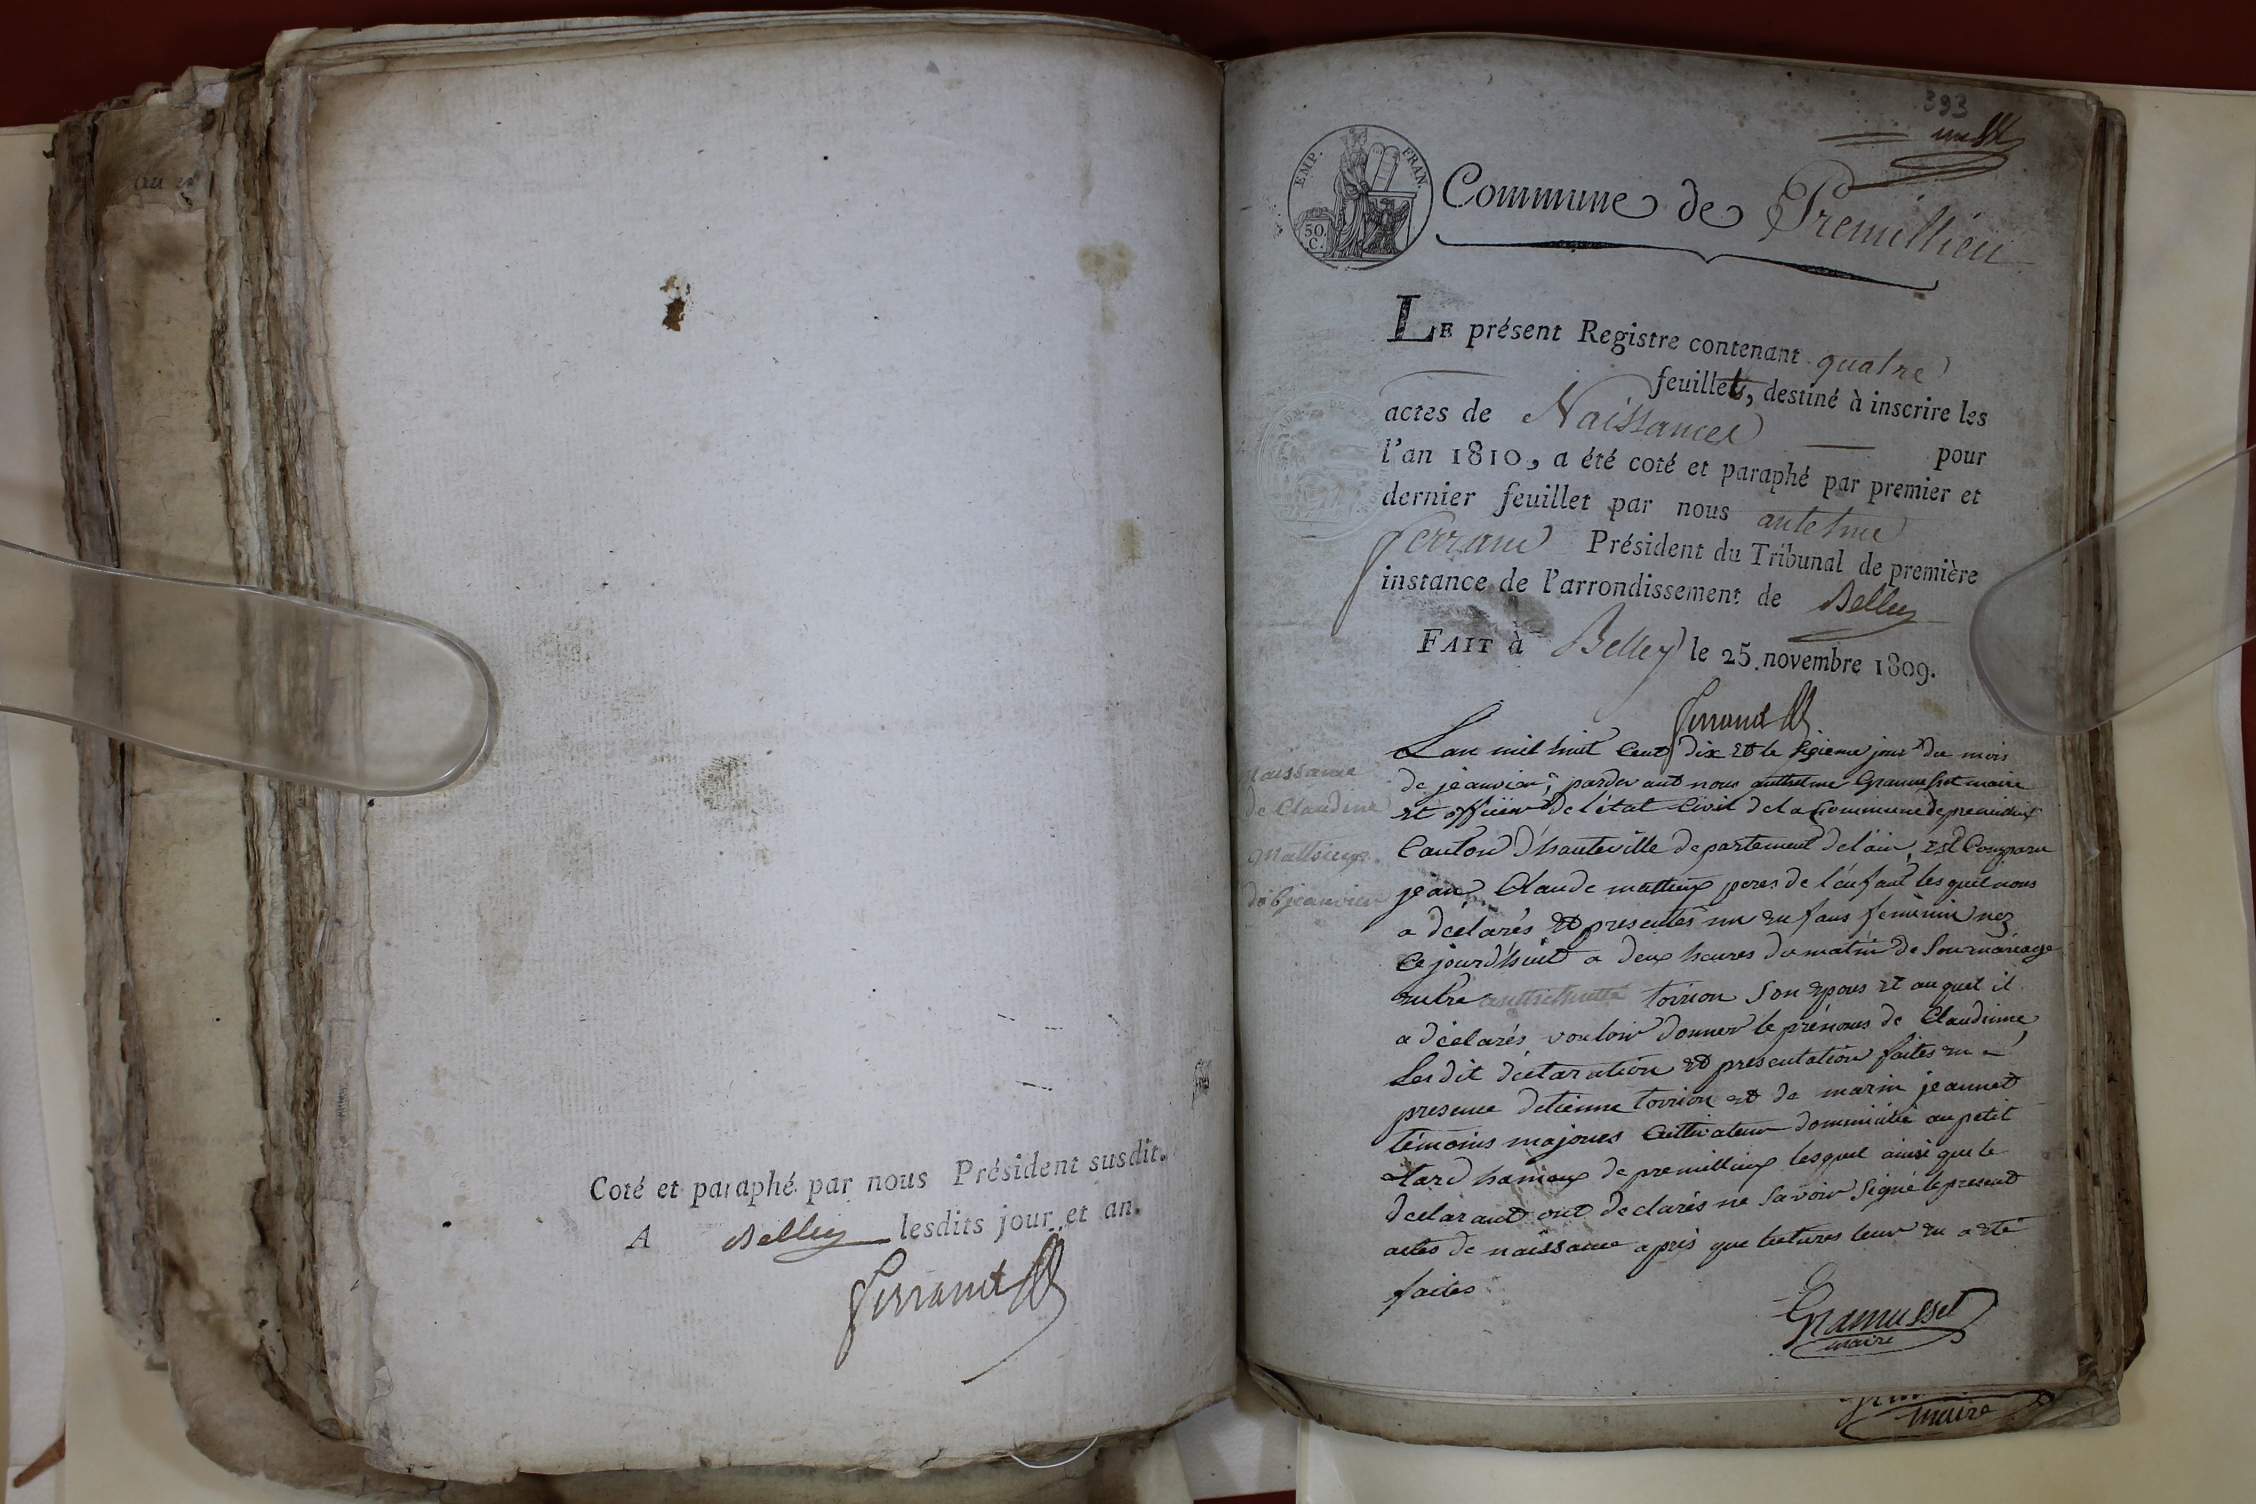 Coté et paraphé par nous Président susdit.
A Belley lesdits jour et an.
Ferrand
393
EMP. FRAN.
50. C.
Commune de Premillieu
LE présent Registre contenant quatre
feuillets, destiné à inscrire les
actes de Naissances pour
l'an 1810, a été coté et paraphé par premier et
dernier feuillet par nous antelme
ferrand Président du Tribunal de première
instance de l'arrondissement de Belley
FAIT à Belley le 25 novembre 1809.
Ferrand
Naissance
de Claudine
Mattieux
du 6 jeanvier
Lan mil huit Cent dix et le sixieme jour du mois
de jeanvier, pardevant nous anthelme Gramusset maire
et officier de l'état Civil de la Commune de premillieux
Canton d'hauteville departement delain, est Comparu
jean Claude mattieux peres de l'enfant lesquel nous
a déclarés et presentés un enfans feminin nez
Ce jourd'huit a deux heures du matin de Son mariage
entre toirion Son epous et auquel il
a déclarés vouloir donner le prénoms de Claudinne,
Les dit déclaration et presentation faites en
presence detienne toirion et de marin jeannet
témoins majeurs Cultivateur domicilié au petit
hameux de premillieux lesquel ainsi que le
declarant ont declarés ne Savoir Signé le present
actes de naissance apris que lectures leur en a eté
faites
Gramusset
maire
maire